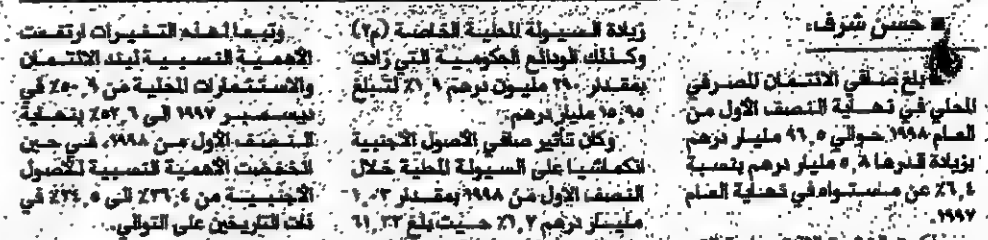 ■ حسن شرف:
بلغ صافي الائتمان المصرفي
المحلي في نهاية النصف الأول من
العام ١٩٩٨ حوالي ٩٦,٥ مليار درهم
بزيادة قدرها ٥,٨ مليار درهم بنسبة
٦,٤٪ عن مستواه في نهاية العام
١٩٩٧.
زيادة السيولة المحلية الخاصة (م٢)
وكذلك الودائع الحكومية التي زادت
بمقدار ٢٩٠ مليون درهم ١,٩٪ لتبلغ
١٥,٩٥ مليار درهم.
وكان تأثير صافي الأصول الأجنبية
انكماشيا على السيولة المحلية خلال
النصف الأول من ١٩٩٨ بمقدار
مليار درهم ١,٧٪ حيث بلغ ٦١,٣٢
وتبعا لهذه التغيرات ارتفعت
الأهمية النسبية لبند الائتمان
والاستثمارات المحلية من ٥٠,٩٪ في
ديسمبر ١٩٩٧ الى ٥٢,٦٪ بنهاية
النصف الأول من ١٩٩٨، في حين
انخفضت الأهمية النسبية للأصول
الأجنبية من ٣٦,٤٪ الى ٣٤,٥٪ في
ذات التاريخين على التوالي.